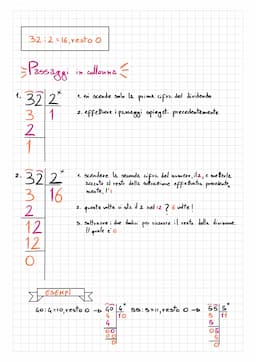 32 : 2 = 16, resto 0
Passaggi in colonna
1. 32 2
3 1
2
1
1. si scende solo la prima cifra del dividendo
2. effettuare i passaggi spiegati precedentemente
2. 32 2
3 16
2
12
12
0
1. scendere la seconda cifra del numero, il 2, e metterla
accanto al resto della sottrazione effettuata precedente
mente, l'1
2. quante volte ci sta il 2 nel 12? 6 volte!
3. sottrarre i due dodici per ricavare il resto della divisione.
Il quale è 0
ESEMPI
40:4=10, resto 0 → 40 4
4 10
00
00
0
55:5=11, resto 0 → 55 5
5 11
05
05
0